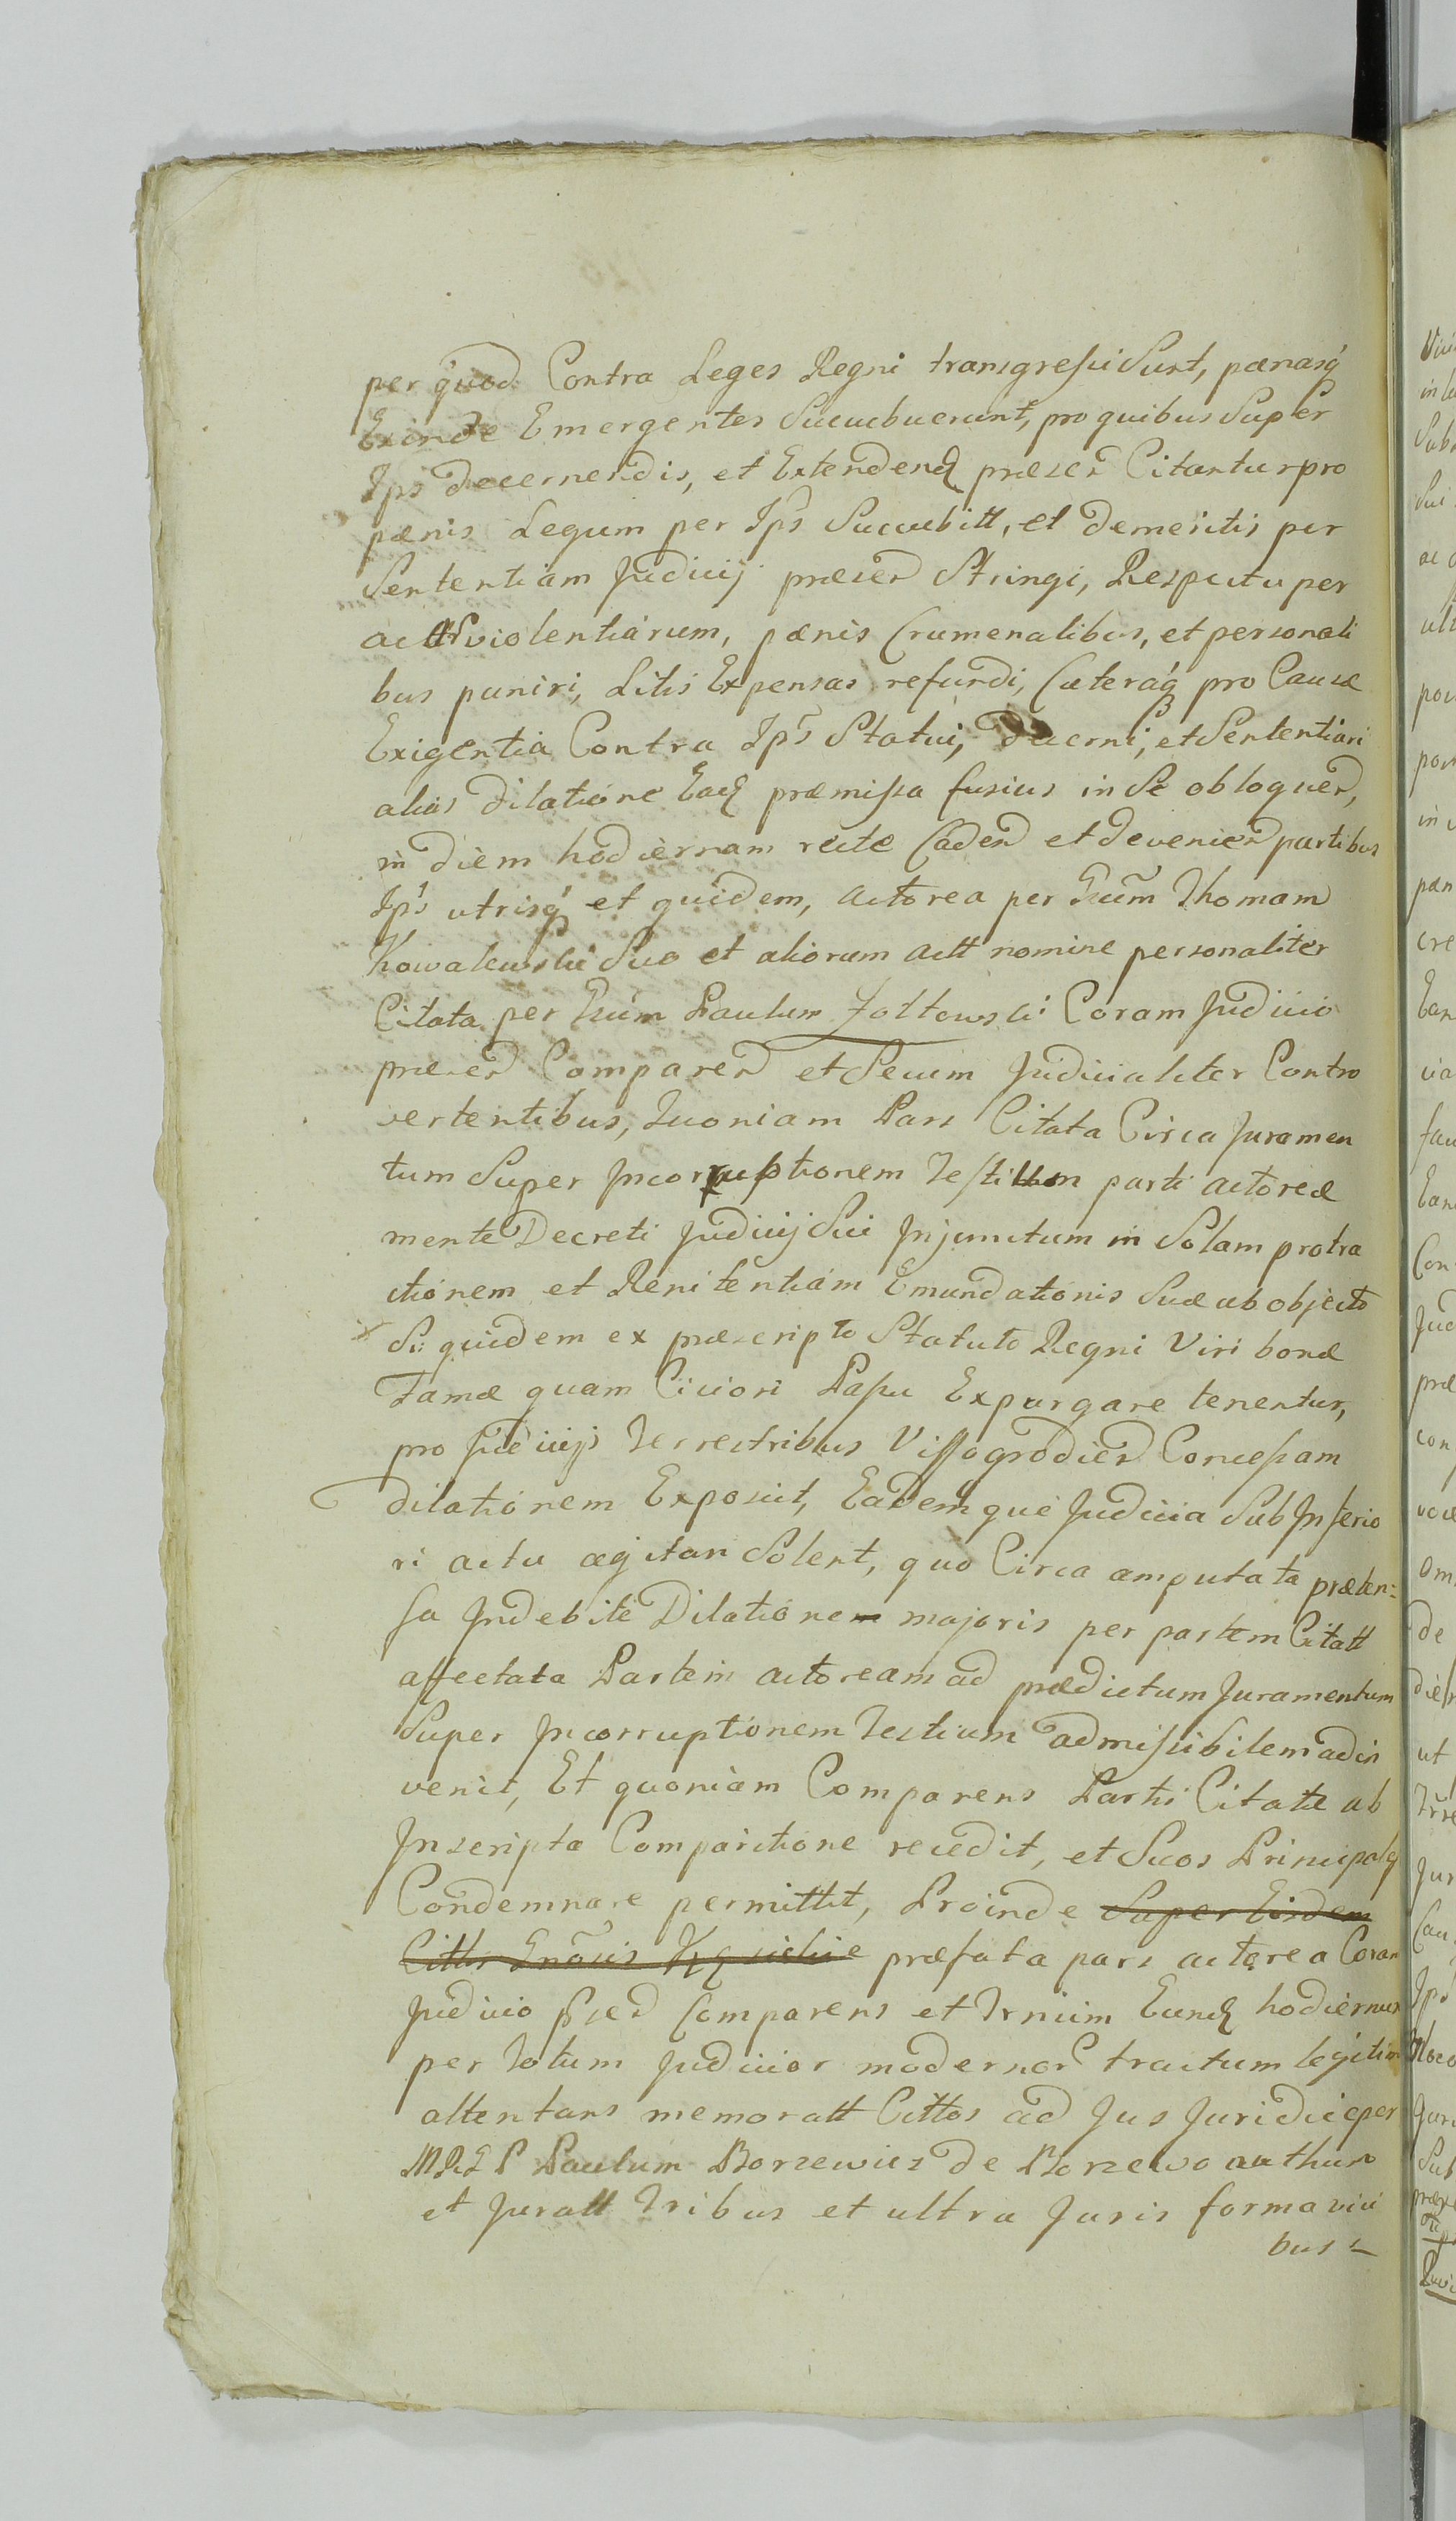 per quod Contra Leges Regni transgressi Sunt, pænasq́
Exinde Emergentes Sucubuerunt, pro quibus Super
Ips decernendis, et Extendend præsen Citantur pro
pænis Legum per Ips Succubitt, et demeritis per
Sententiam Judicij præsen Stringi, Respectu per
violentiarum, pænis Crumenalibus, et personali
bus puniri, Litis Expensas refundi, Cæteraq́ pro Causæ
Exigentia Contra Ips Statui, decerni, et Sententiari
alias dilatione Ead præmissa fusius in Se obloquen,
in diem hodiernam recte Caden et devenien partibus
Ips utrisq́ et quidem, actorea per Gnum Thomam
Kowalewski Suo et aliorum actt nomine personaliter
Citata per Gnum Paulum Zoltowski Coram Judicio
præsen Comparen et Secum Judicialiter Contro
vertentibus, Quoniam Pars Citata Circa Juramen
tum Super Incorruptionem Testium parti actoreæ
mente Decreti Judicij Sui Injunctum in Solam protra
ctionem et Renitentiam Emundationis Suæ ab objecto
Si quidem ex præscripto Statuto Regni Viri bonæ
Famæ quam Citiori Passu Expurgare tenentur,
pro Judicijs Terrestribus Vissogrodien Concessam
dilationem Exposcit, Eademque Judicia Sub Inferio
ri actu agitari Solent, quo Circa amputata præten:
sa Indebite Dilatione majoris per partem Citatt
affectata Partem actoream ad prædictum Juramentum
Super Incorruptionem Testium admissibilem adin
venit, Et quoniam Comparens Partis Citatæ ab
Inscripta Comparitione recedit, et Suos Principalq
Condemnare permittit, Proinde Super Eisdem
Cittis præfata pars actorea Coram
Judicio Comparens et Trnum Eund hodiernum
per Totum Judicior modernor tractum legitim
attentans memoratt Cittos ad Jus Juridice per
Paulum Borzewicz de Borzewo
et Juratt Tribus et ultra Juris forma vici
bus